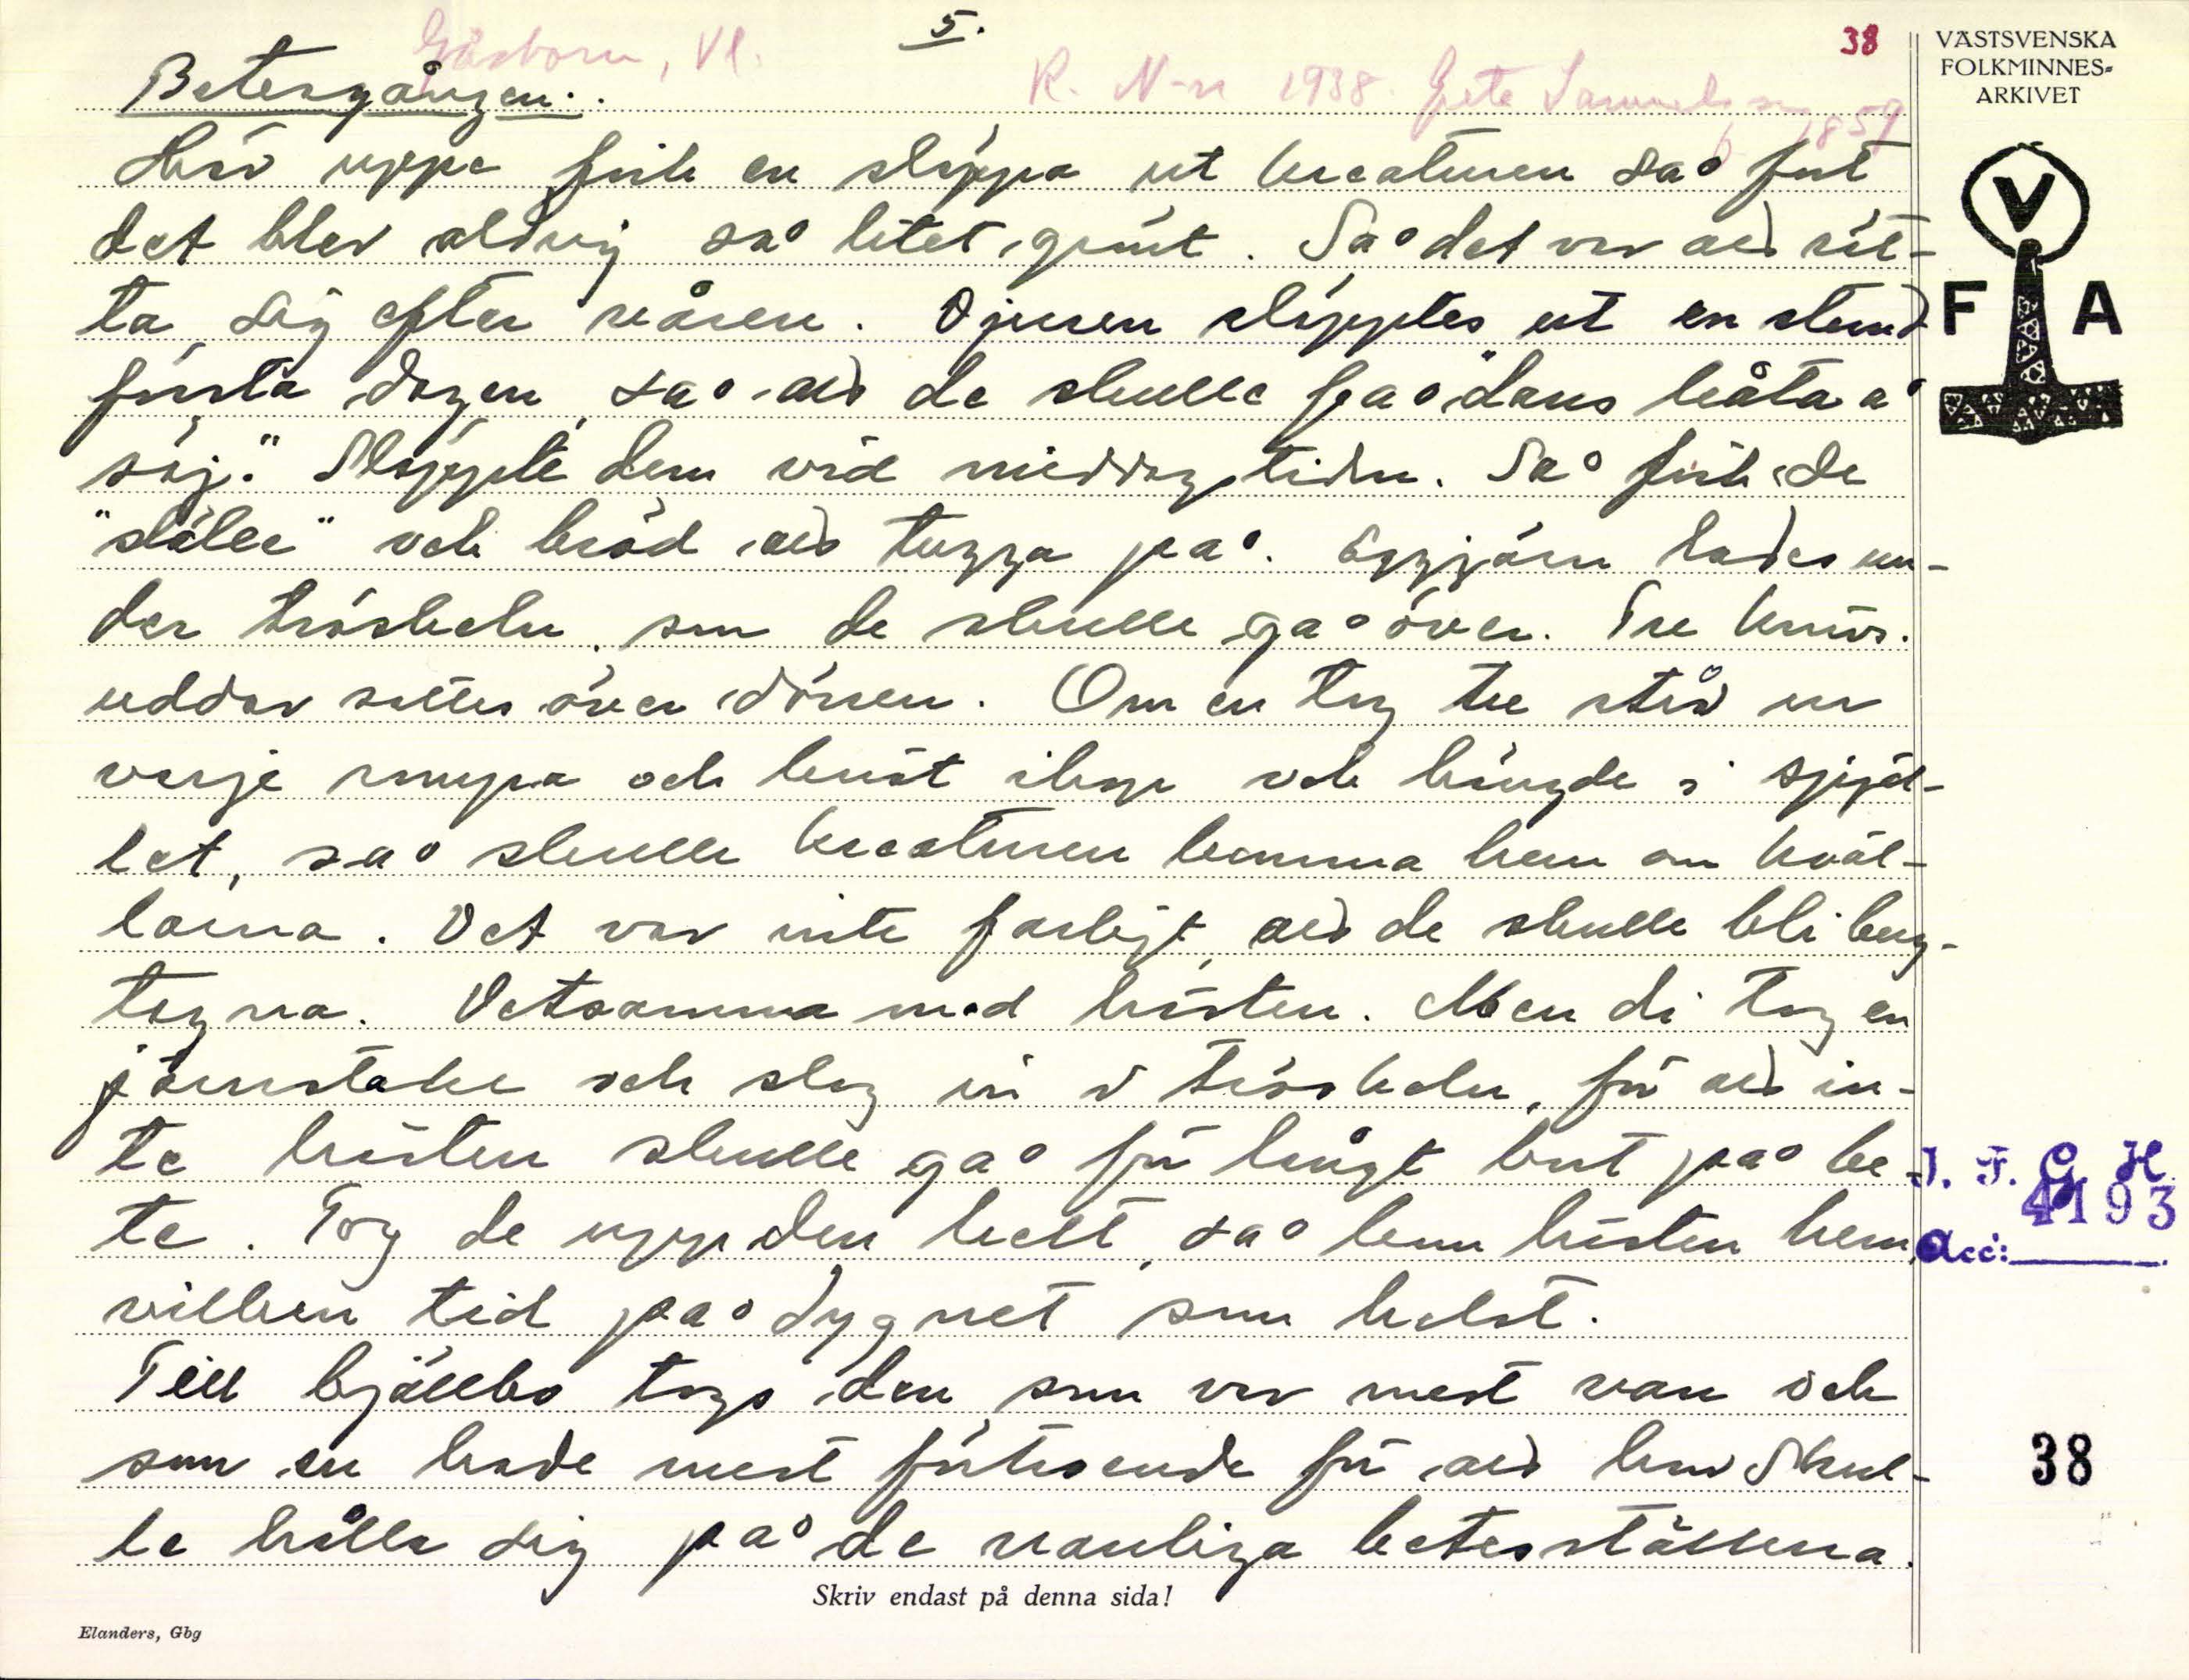 5.
38
Gåsborn, Vl.
R. N-n 1938. Greta Samuelsson
f 1859
Betesgången.
Här uppe fick en släppa ut kreaturen så fort
det blev aldrig så litet grönt. Så det var att rät-
ta sig efter våren. Djuren släpptes ut en stund
första dagen, så att de skulle få "dans låta å
säj." Släppte dem vid middagstiden. Så fick de
"slåke" och bröd att tugga på. Eggjärn lades un-
der tröskeln, som de skulle gå över. Tre knivs-
uddar sattes över dörren. Om en tog tre strå ur
varje rumpa och knöt ihop och hängde i spjäl-
let, så skulle kreaturen komma hem om kväl-
larna. Det var inte farligt, att de skulle bli berg-
tagna. Detsamma med hästen. Men di tog en
järnstake och slog in i tröskeln, för att in-
te hästen skulle gå för långt bort på be-
te. Tog de upp den helt, så kom hästen hem,
vilken tid på dygnet som helst.
Till bjällko togs den som var mest van och
som en hade mest förtroende för att hon skul-
le hålla sig på de vanliga betesställena.
VÄSTSVENSKA
FOLKMINNES-
ARKIVET
V
F A
I. F. G. H.
4193
Acc:
38
Skriv endast på denna sida!
Elanders, Gbg